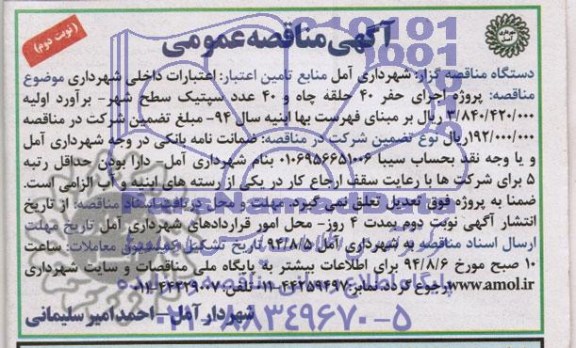 آگهی مناقصه عمومی
(نوبت دوم)
دستگاه مناقصه گزار: شهرداری آمل منابع تامین اعتبار: اعتبارات داخلی شهرداری موضوع
مناقصه: پروژه اجرای حفر ۴۰ حلقه چاه و ۴۰ عدد سپتیک سطح شهر- برآورد اولیه
۳/۸۴۰/۴۲۰/۰۰۰ ریال بر مبنای فهرست بها ابنیه سال ۹۴- مبلغ تضمین شرکت در مناقصه
۱۹۲/۰۰۰/۰۰۰ریال نوع تضمین شرکت در مناقصه: ضمانت نامه بانکی در وجه شهرداری آمل
و یا وجه نقد بحساب سیبا ۰۱۰۶۹۵۶۶۵۱۰۰۶ بنام شهرداری آمل- دارا بودن حداقل رتبه
۵ برای شرکت ها با رعایت سقف ارجاع کار در یکی از رسته های ابنیه و آب الزامی است.
ضمنا به پروژه فوق تعدیل تعلق نمی گیرد. مهلت و محل دریافت اسناد مناقصه: از تاریخ
انتشار آگهی نوبت دوم بمدت ۴ روز- محل امور قراردادهای شهرداری آمل تاریخ مهلت
ارسال اسناد مناقصه به شهرداری آمل ۹۴/۸/۵ تاریخ تشکیل کمیسیون معاملات: ساعت
۱۰ صبح مورخ ۹۴/۸/۶ برای اطلاعات بیشتر به پایگاه ملی مناقصات و سایت شهرداری
www.amol.ir رجوع گردد. نمابر ۴۴۲۵۹۴۹۷-۰۱۱ تلفن: ۷-۴۴۲۲۹۰-۰۱۱
شهردار آمل - احمد امیر سلیمانی
ParsNamadData
۰۲۱-۸۸۳۴۹۶۷۰-۵